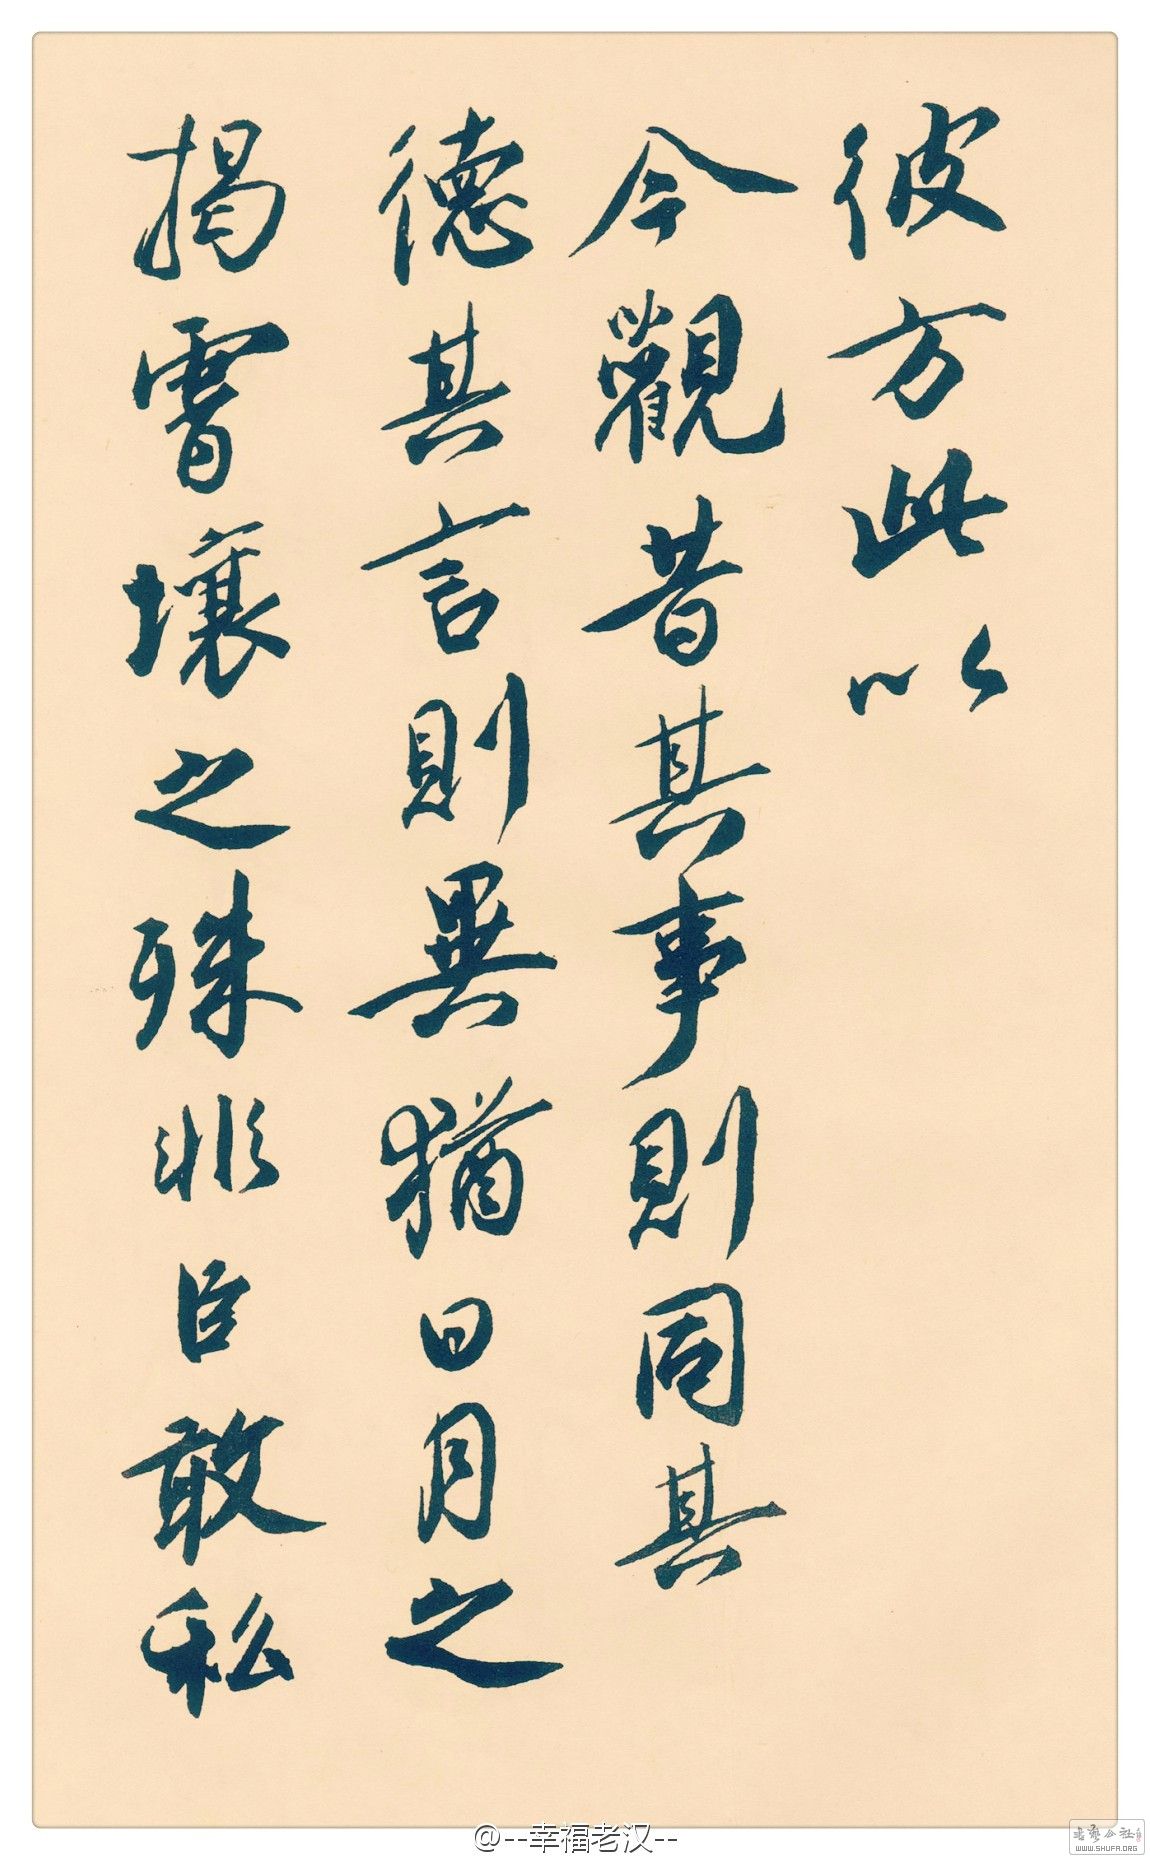 彼方此以
今觀昔其事則同其
德其言則異猶日月之
揭霄壤之殊非臣敢私
@--幸福老汉--
书艺公社
WWW.SHUFA.ORG